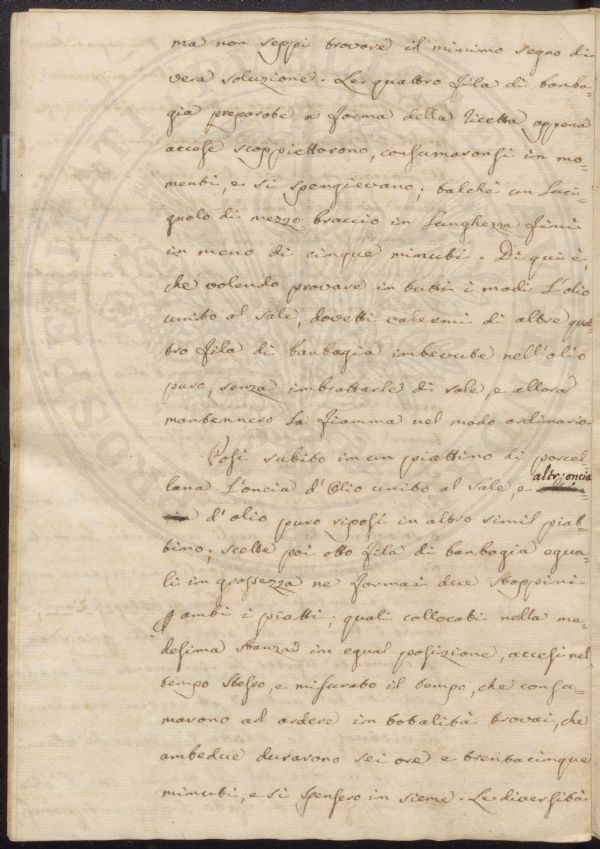 ma non seppi trovare il minimo segno di
vera soluzione. Le quattro fila di bamba=
gia preparate a forma della ricetta appena
accese scoppiettorono, consumaronsi in mo=
menti, e si spengievano; talchè un Luci=
gnolo di mezzo braccio in Lunghezza finì
in meno di cinque minuti. Di qui è,
che volendo provare in tutti i modi L'olio
unito al sale, dovetti valermi di altre quat=
tro fila di bambagia imbevute nell'olio
puro, senza imbrattarle di sale, e allora
mantennero la fiamma nel modo ordinario
Posi subito in un piattino di porcel=
lana L'oncia d'Olio unito al sale, e altr'oncia
d'olio puro riposi in altro simil piat=
tino; scelte poi otto fila di bambagia egua=
li in grossezza ne formai due stoppini
p ambi i piatti; quali collocati nella me=
desima stanza in egual posizione, accesi nel
tempo stesso, e misurato il tempo, che consu=
marono ad ardere in totalità trovai, che
ambedue durarono sei ore e trentacinque
minuti, e si spensero in sieme. Le diversità
PROSPERITATI